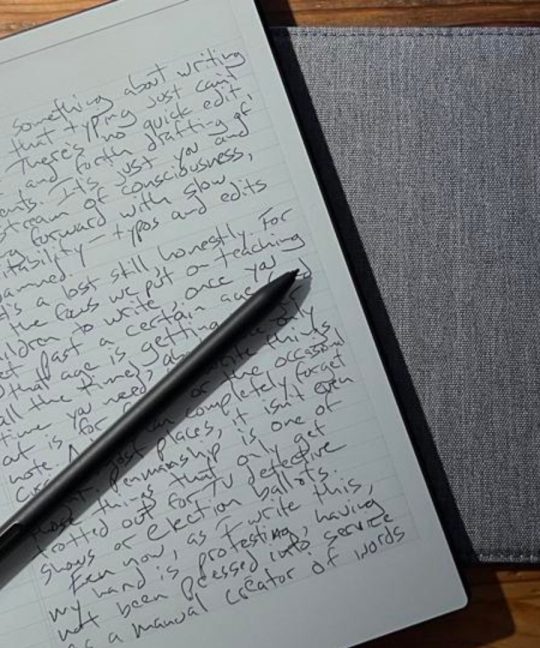 something about writing
that typing just can't
There's no quick edit,
and forth drafting of
ents. It's just you and
stream of consciousness,
ng forward with slow
itability - typos and edits
damned.
t's a lost still honestly. For
the focus we put on teaching
ildren to write, once you
get past a certain age
that age is getting
all the time), ab only
time you need write things
out is for or the occasional
note. A can completely forget
just places, it isn't even
penmanship is one of
those things that only get
trotted out for TV detective
shows or election ballots.
Even now, as I write this,
my hand is protesting, having
not been pressed into service
as a manual creator of words